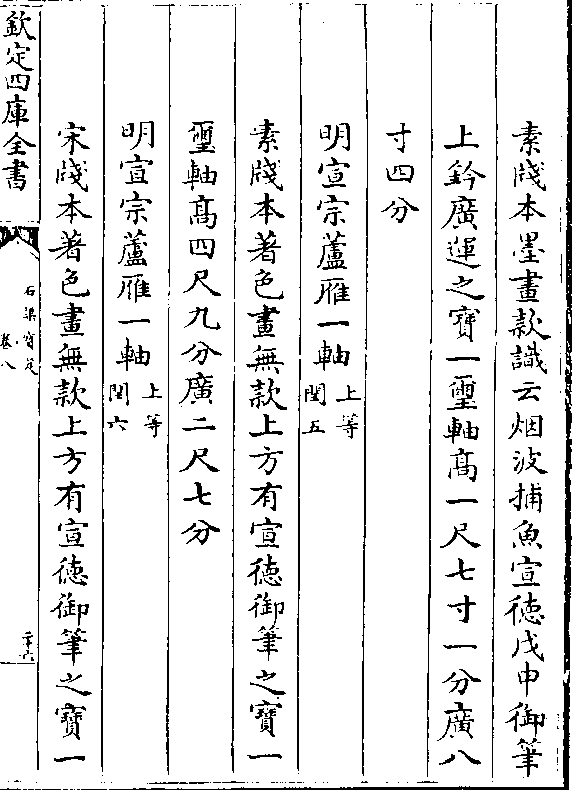 素牋本墨畫款識云烟波捕魚宣徳戊申御筆
上鈐廣運之寶一璽軸髙一尺七寸一分廣八
寸四分
明宣宗蘆雁一軸上等閏五
素牋本著色畫無款上方有宣徳御筆之寶一
璽軸髙四尺九分廣二尺七分
明宣宗蘆雁一軸上等閏六
宋牋本著色畫無款上方有宣徳御筆之寶一
欽定四庫全書
石渠寳笈
卷八
二十六